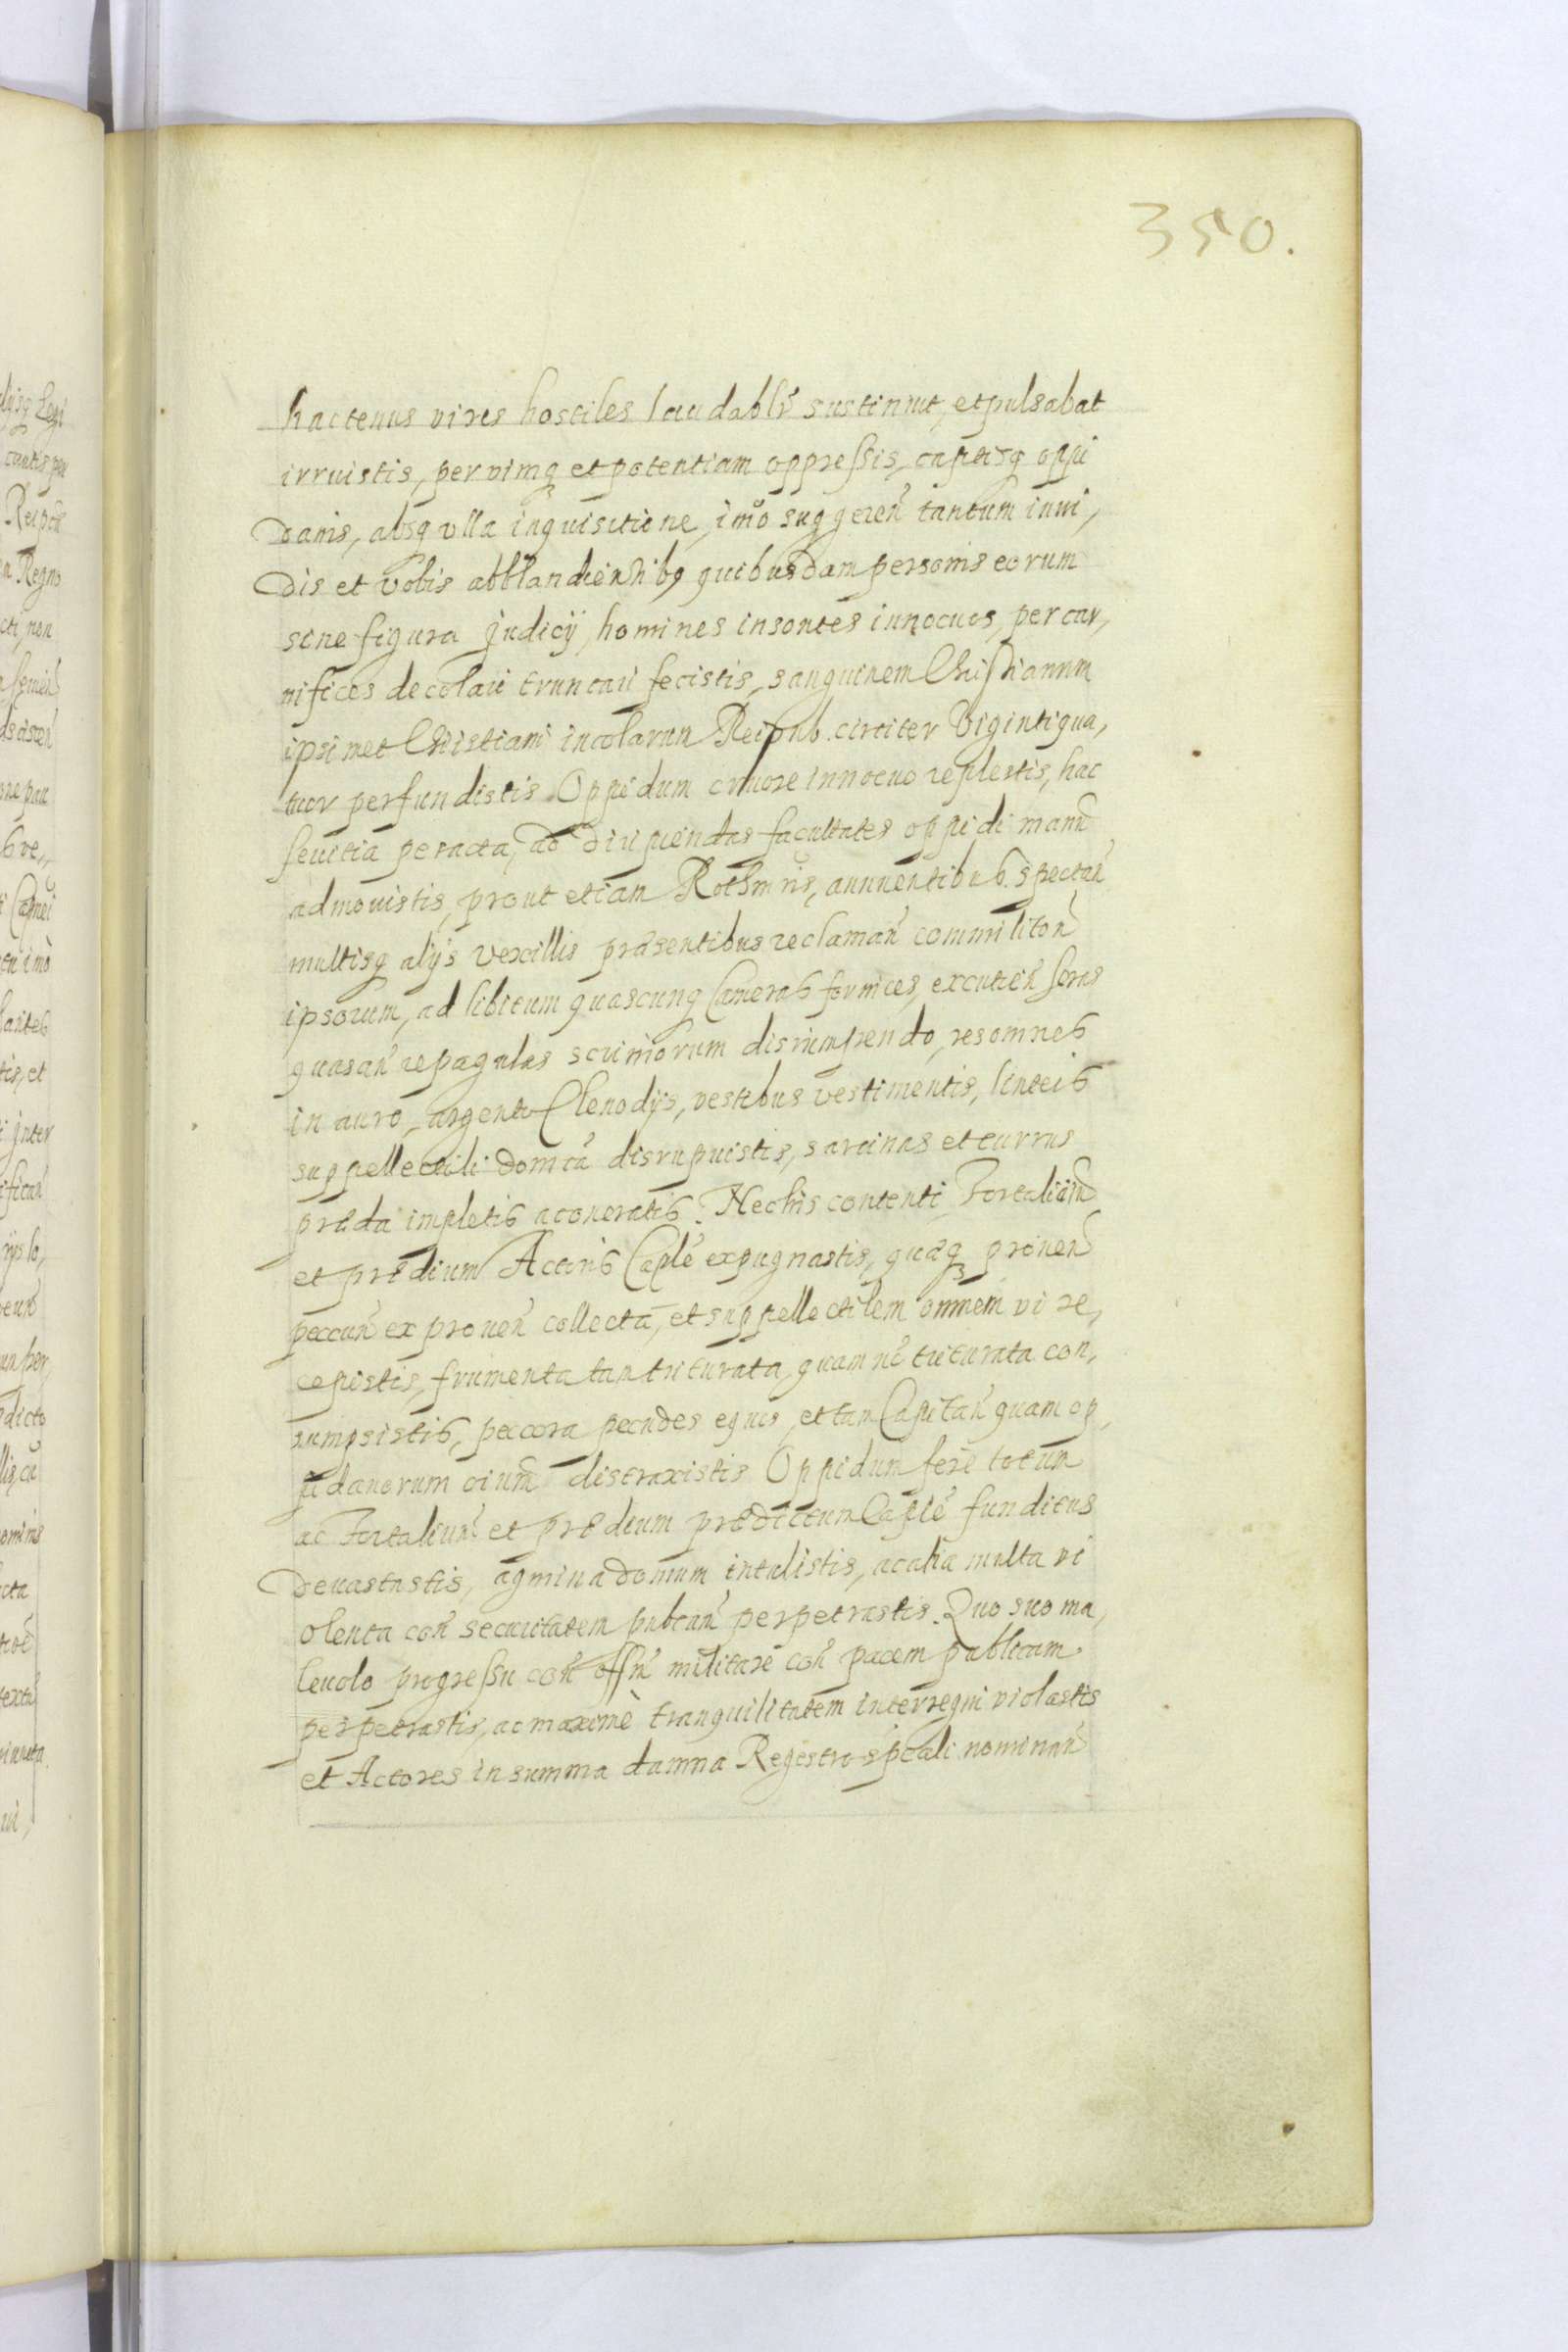 350.
hactenus vires hostiles laudablr̃ sustinuit, et pulsabat
irruistis, per vimq et potentiam oppressis, captisq oppi
danis, absq vlla inquisitione, imò suggereñ tantum invi,
dis et vobis abblandientibq quibusdam personis eorum
sine figura Judicij, homines insontes innocuos, per car,
nifices decolari truncari fecistis, sanguinem Christianum
ipsimet Christiani incolarum Reipub. circiter Vigintiqua,
tuor perfundistis Oppidum cruore innocuo replestis, hac
sevitia peracta, ad diripiendas facultates oppidi manũ
admovistis, prout etiam Rothmris, annuentibus spectañ
multisq alijs vexillis præsentibus reclamañ commilitoñ
ipsorum, ad libitum quascunq Cameras fornices, excutieñ seras
quasañ repagulas scriniorum disrumpendo, res omnes
in auro, argento Clenodijs, vestibus vestimentis, linteis
suppellectili domcã disrupuistis, sarcinas et currus
præda impletis aconeratis. Nec his contenti Fortalitiũ
et prædium Actoris Caplẽ expugnastis, quaq proveñ
peccuñ ex proveñ collecta, et suppellectilem omnem vi re,
cepistis, frumenta tam triturata, quam nõ triturata con,
sumpsistis, peccora pecudes equos, et tam Capitañ quam op,
pidanorum oium distraxistis Oppidum ferè totum
ac Fortalium et prædium prædictum Caplẽ funditus
devastastis, agmina domum intulistis, ac alia multa vi
olenta coñ securitatem publcam perpetrastis. Quo suo ma,
levolo progressu coñ offm̃ militare coñ pacem publicam
perpetrastis, ac maximè tranquilitatem interregni violastis
et Actores in summa damna Regestro spcali nominañ